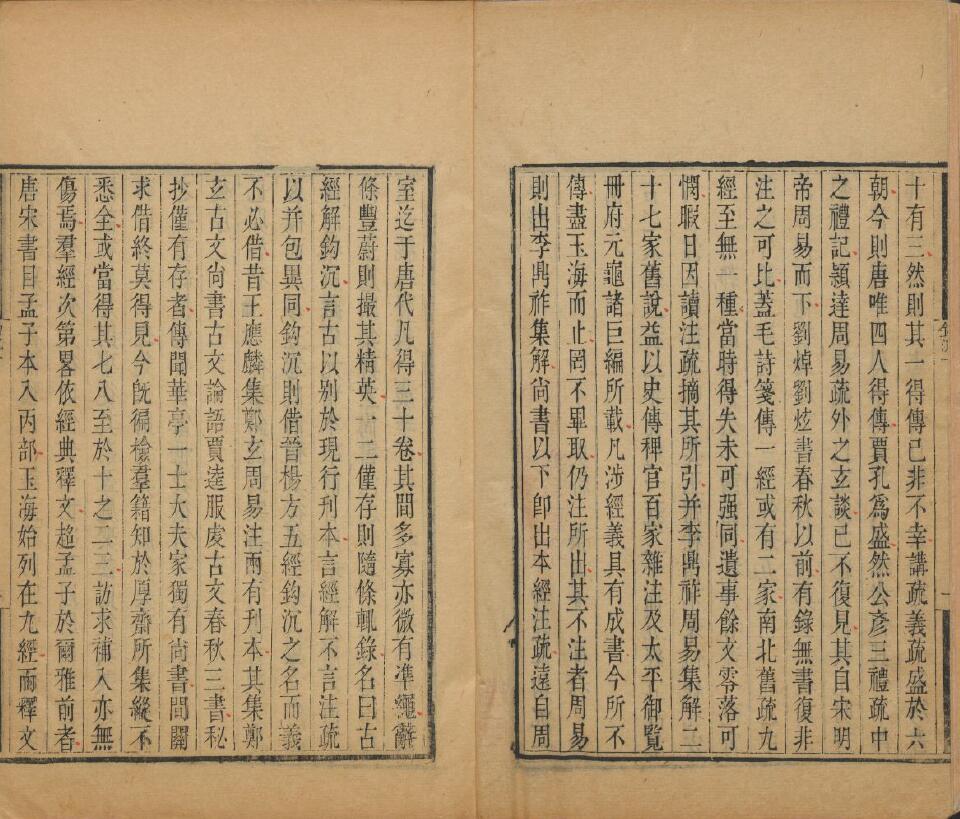 十有三然則其一得傳已非不幸講疏義疏盛於六
朝今則唐唯四人得傳賈孔爲盛然公彥三禮疏中
之禮記穎達周易疏外之玄談已不復見其自宋明
帝周易而下劉焯劉炫書春秋以前有錄無書復非
注之可比蓋毛詩箋傳一經或有二家南北舊疏九
經至無一種當時得失未可强同遺事餘文零落可
憫暇日因讀注疏摘其所引并李鼎祚周易集解二
十七家舊說益以史傳稗官百家雜注及太平御覽
冊府元龜諸巨編所載凡涉經義具有成書今所不
傳盡玉海而止罔不畢取仍注所出其不注者周易
則出李鼎祚集解尙書以下卽出本經注疏遠自周
室迄于唐代凡得三十卷其間多寡亦微有準繩辭
條豐蔚則撮其精英一二僅存則隨條輒錄名曰古
經解鈎沉言古以别於現行刊本言經解不言注疏
以并包異同鈎沉則借晉楊方五經鈎沉之名而義
不必借昔王應麟集鄭玄周易注兩有刊本其集鄭
玄古文尙書古文論語賈逵服虔古文春秋三書秘
抄僅有存者傳聞華亭一士大夫家獨有尙書間關
求借終莫得見今旣徧檢羣籍知於厚齋所集縱不
悉全或當得其七八至於十之二三訪求補入亦無
傷焉羣經次第畧依經典釋文趙孟子於爾雅前者
唐宋書目孟子本入丙部玉海始列在九經而釋文